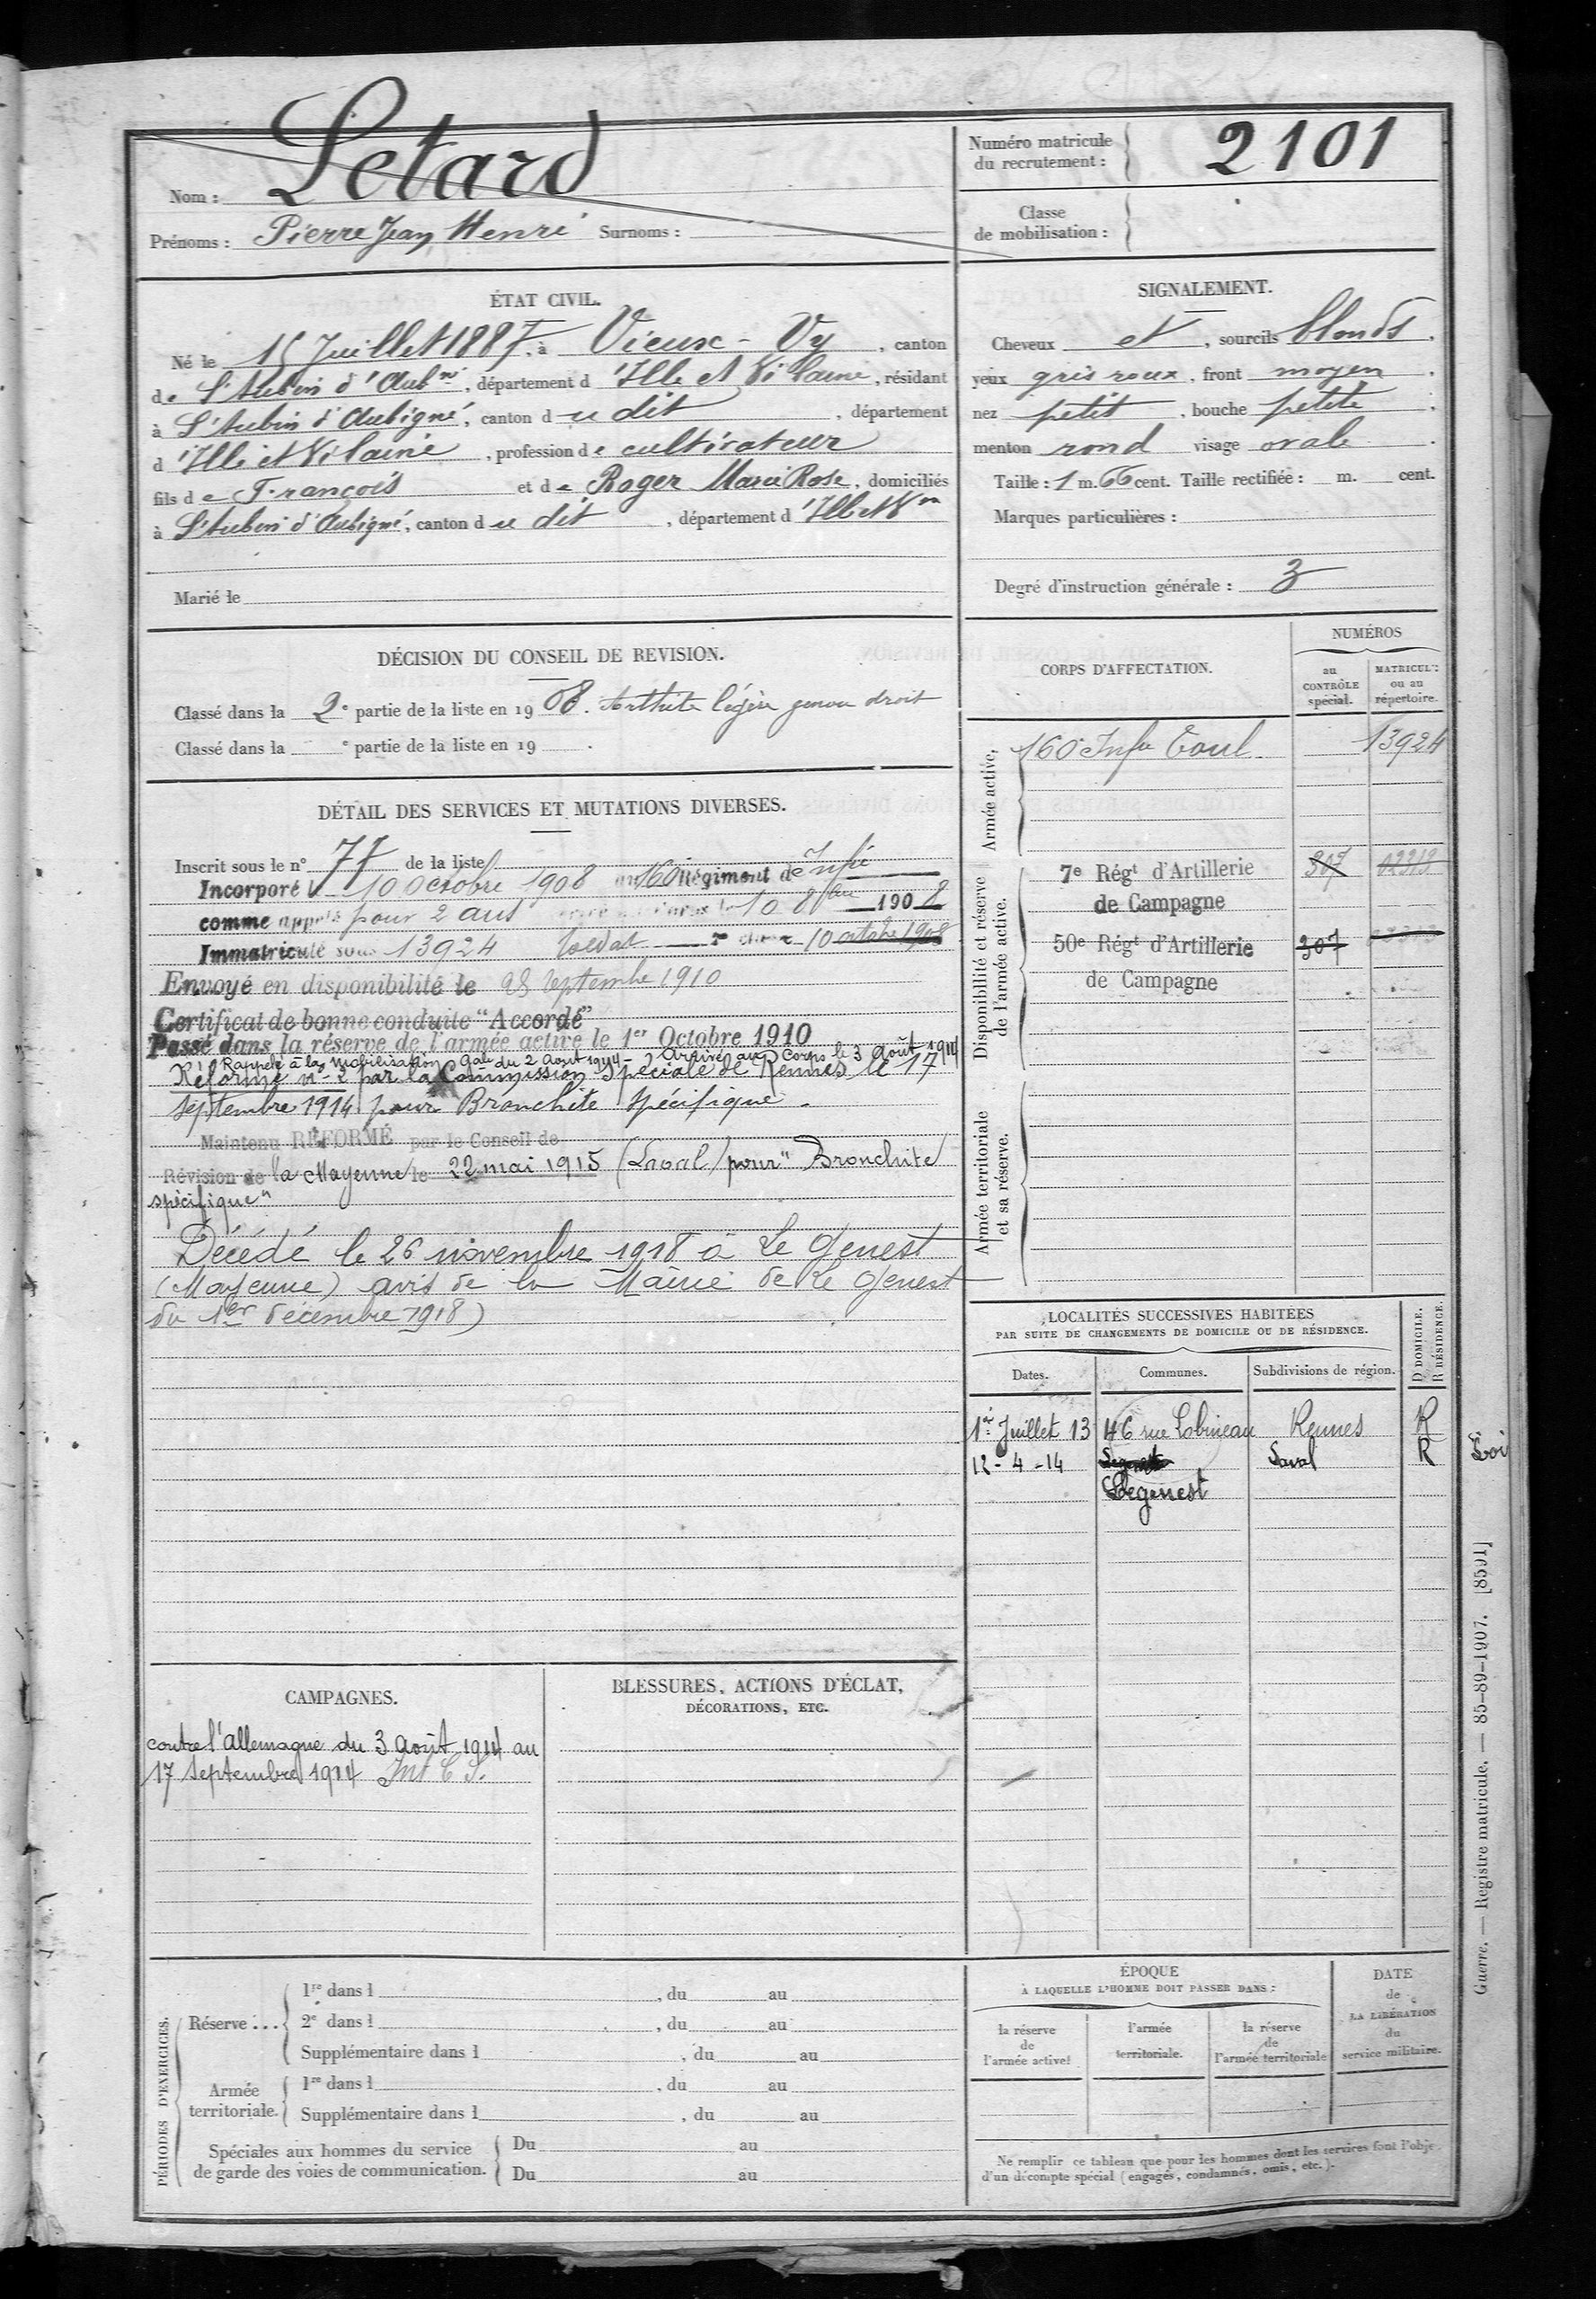 Nom : Letard
Prénoms : Pierre Jean Henri Surnoms :
Numéro matricule
du recrutement : 2101
Classe
de mobilisation :
ÉTAT CIVIL.
Né le 15 Juillet 1887, à Vieux-Vy, canton
de St Aubin d'Aubné, département d'Ille et Vilaine, résidant
à St Aubin d'Aubigné, canton du dit, département
d'Ille et Vilaine, profession de cultivateur
fils de François et de Roger Marie Rose, domiciliés
à St Aubin d'Aubigné, canton du dit, département d'Ille et Vne
Marié le
SIGNALEMENT.
Cheveux et, sourcils blonds,
yeux gris roux, front moyen,
nez petit, bouche petite,
menton rond visage ovale.
Taille : 1 m. 66 cent. Taille rectifiée : m. cent.
Marques particulières :
Degré d'instruction générale : 3
DÉCISION DU CONSEIL DE REVISION.
Classé dans la 2e partie de la liste en 1908. Arthrite légère genou droit
Classé dans la e partie de la liste en 19 .
DÉTAIL DES SERVICES ET MUTATIONS DIVERSES.
Inscrit sous le n° 77 de la liste
Incorporé 10 octobre 1908 au 160 Régiment de Infie
comme appelé pour 2 ans 10 8bre 1908
Immatriculé sous 13924 Soldat 2e classe 10 octobre 1908
Envoyé en disponibilité le 25 septembre 1910
Certificat de bonne conduite "Accordé"
Passé dans la réserve de l'armée active le 1er Octobre 1910
Rappelé à la mobilisation gale du 2 août 1914 - Arrivé au Corps le 3 août 1914
Réformé n° 2 par la Commission Spéciale de Rennes le 17
septembre 1914 pour Bronchite spécifique.
Maintenu RÉFORMÉ par le Conseil de
Révision de la Mayenne le 22 mai 1915 (Laval) pour "Bronchite
spécifique"
Décédé le 26 novembre 1918 à Le Genest
(Mayenne) avis de la Mairie de Le Genest
du 1er décembre 1918)
CORPS D'AFFECTATION.
NUMÉROS
au
CONTRÔLE
spécial.
MATRICULE
ou au
répertoire.
Armée active.
160e Infie Toul 13924
Disponibilité et réserve
de l'armée active.
7e Régt d'Artillerie 307 02313
de Campagne
50e Régt d'Artillerie 307
de Campagne
Armée territoriale
et sa réserve.
LOCALITÉS SUCCESSIVES HABITÉES
PAR SUITE DE CHANGEMENTS DE DOMICILE OU DE RÉSIDENCE.
Dates.
Communes.
Subdivisions de région.
D DOMICILE.
R RÉSIDENCE.
1er Juillet 13 46 rue Lobineau Rennes R
12-4-14 Laval R
Legenest
Loi
CAMPAGNES.
contre l'Allemagne du 3 août 1914 au
17 septembre 1914 Int C S.
BLESSURES, ACTIONS D'ÉCLAT,
DÉCORATIONS, ETC.
PÉRIODES D'EXERCICES.
Réserve...
1re dans l , du au
2e dans l , du au
Supplémentaire dans l , du au
Armée
territoriale.
1re dans l , du au
Supplémentaire dans l , du au
Spéciales aux hommes du service
de garde des voies de communication.
Du au
Du au
ÉPOQUE
À LAQUELLE L'HOMME DOIT PASSER DANS :
la réserve
de
l'armée active.
l'armée
territoriale.
la réserve
de
l'armée territoriale
DATE
de
LA LIBÉRATION
du
service militaire.
Ne remplir ce tableau que pour les hommes dont les services font l'obje
d'un décompte spécial (engagés, condamnés, omis, etc.).
Guerre. — Registre matricule. — 85-89-1907. [8591]